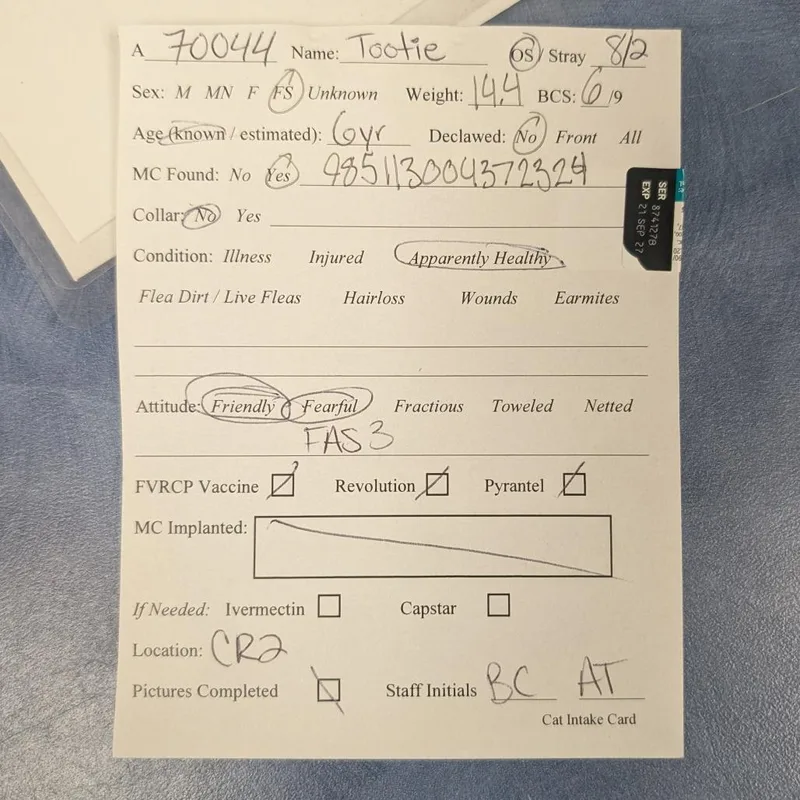 A 70044 Name: Tootie OS/ Stray 8/2
Sex: M MN F FS Unknown Weight: 14.4 BCS: 6/9
Age (known / estimated): 6yr Declawed: No Front All
MC Found: No Yes 985113004372324
SER 874127B
EXP 21 SEP 27
Collar: No Yes
Condition: Illness Injured Apparently Healthy
Flea Dirt / Live Fleas Hairloss Wounds Earmites
Attitude: Friendly Fearful Fractious Toweled Netted
FAS 3
FVRCP Vaccine Revolution Pyrantel
MC Implanted:
If Needed: Ivermectin Capstar
Location: CR2
Pictures Completed Staff Initials BC AT
Cat Intake Card